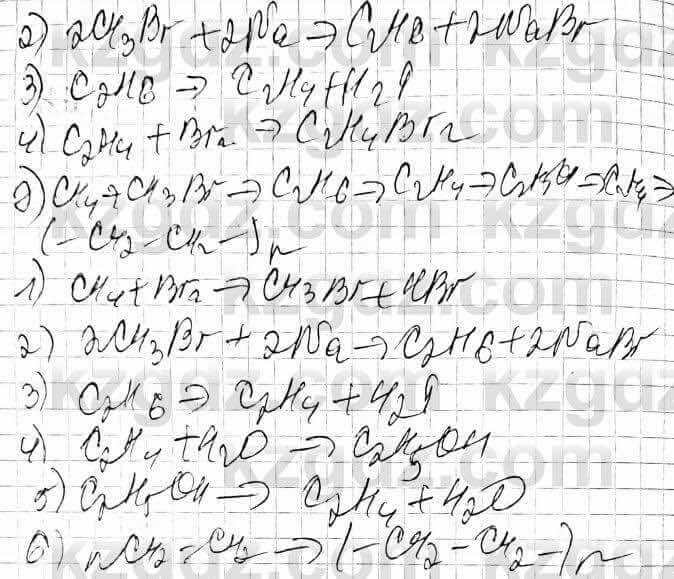 2) 2CH3Br + 2Na → C2H6 + 2NaBr
3) C2H6 → C2H4 + H2↑
4) C2H4 + Br2 → C2H4Br2
д) CH4 → CH3Br → C2H6 → C2H4 → C2H5OH → C2H4 →
(-CH2-CH2-)n
1) CH4 + Br2 → CH3Br + HBr
2) 2CH3Br + 2Na → C2H6 + 2NaBr
3) C2H6 → C2H4 + H2↑
4) C2H4 + H2O → C2H5OH
5) C2H5OH → C2H4 + H2O
6) nCH2=CH2 → (-CH2-CH2-)n
kzgdz.com